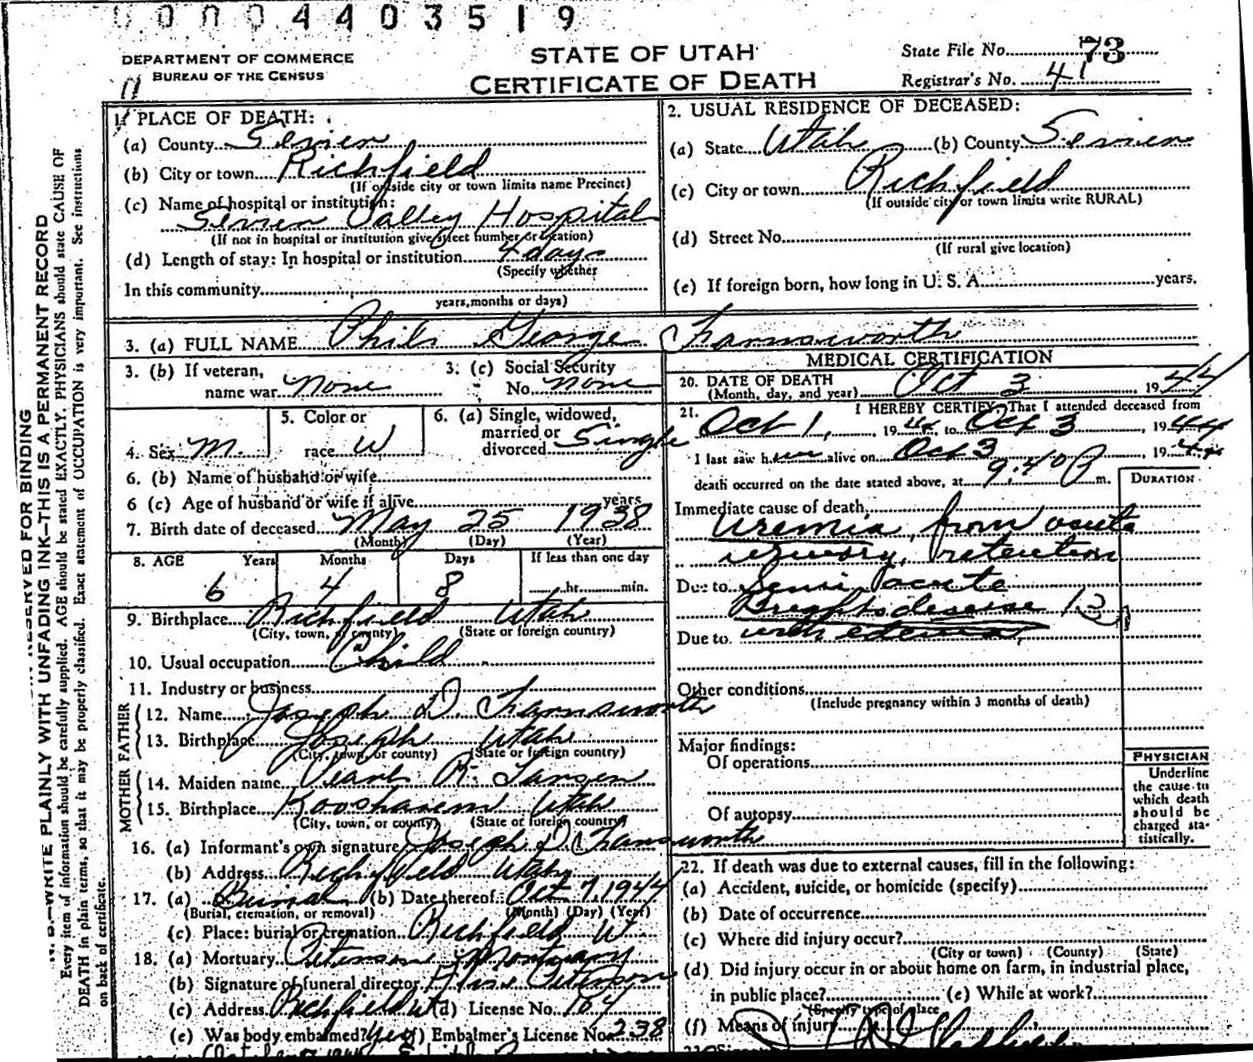 0000440 3519
DEPARTMENT OF COMMERCE
BUREAU OF THE CENSUS
STATE OF UTAH
CERTIFICATE OF DEATH
State File No. 73
Registrar's No. 41
1. PLACE OF DEATH:
(a) County Sevier
(b) City or town Richfield
(If outside city or town limits name Precinct)
(c) Name of hospital or institution:
Sevier Valley Hospital
(If not in hospital or institution give street number or location)
(d) Length of stay: In hospital or institution 4 days
(Specify whether
In this community
years, months or days)
2. USUAL RESIDENCE OF DECEASED:
(a) State Utah (b) County Sevier
(c) City or town Richfield
(If outside city or town limits write RURAL)
(d) Street No.
(If rural give location)
(e) If foreign born, how long in U. S. A. years.
3. (a) FULL NAME George Farnsworth
3. (b) If veteran, name war none
3. (c) Social Security No. none
4. Sex M.
5. Color or race W
6. (a) Single, widowed, married or divorced Single
6. (b) Name of husband or wife
6 (c) Age of husband or wife if alive years
7. Birth date of deceased May 25 1938
(Month) (Day) (Year)
8. AGE Years Months Days If less than one day
6 4 8 hr. min.
9. Birthplace Richfield Utah
(City, town, or county) (State or foreign country)
10. Usual occupation Child
11. Industry or business
FATHER
12. Name Joseph D. Farnsworth
13. Birthplace Joseph Utah
(City, town, or county) (State or foreign country)
MOTHER
14. Maiden name Pearl R. Larsen
15. Birthplace Koosharem Utah
(City, town, or county) (State or foreign country)
16. (a) Informant's own signature Joseph D. Farnsworth
(b) Address Richfield Utah
17. (a) Burial (b) Date thereof: Oct 7, 1944
(Burial, cremation, or removal) (Month) (Day) (Year)
(c) Place: burial or cremation Richfield Ut
18. (a) Mortuary Peterson Mortuary
(b) Signature of funeral director Peterson
(c) Address Richfield Ut (d) License No. 164
(e) Was body embalmed? Yes (f) Embalmer's License No. 238
MEDICAL CERTIFICATION
20. DATE OF DEATH
(Month, day, and year) Oct 3, 1944
21. I HEREBY CERTIFY, That I attended deceased from
Oct 1, 1944 to Oct 3, 1944
I last saw him alive on Oct 3, 1944
death occurred on the date stated above, at 9:40 P. m.
DURATION
Immediate cause of death,
Uremia, from acute
urinary, retention
Due to Semi acute
Brights disease 13
Due to with edema,
Other conditions
(Include pregnancy within 3 months of death)
Major findings:
Of operations
Of autopsy
PHYSICIAN
Underline
the cause to
which death
should be
charged sta-
tistically.
22. If death was due to external causes, fill in the following:
(a) Accident, suicide, or homicide (specify)
(b) Date of occurrence
(c) Where did injury occur?
(City or town) (County) (State)
(d) Did injury occur in or about home on farm, in industrial place,
in public place? (e) While at work?
(Specify type of place
(f) Means of injury
RESERVED FOR BINDING
N. B.—WRITE PLAINLY WITH UNFADING INK—THIS IS A PERMANENT RECORD
Every item of information should be carefully supplied. AGE should be stated EXACTLY. PHYSICIANS should state CAUSE OF
DEATH in plain terms, so that it may be properly classified. Exact statement of OCCUPATION is very important. See instructions
on back of certificate.